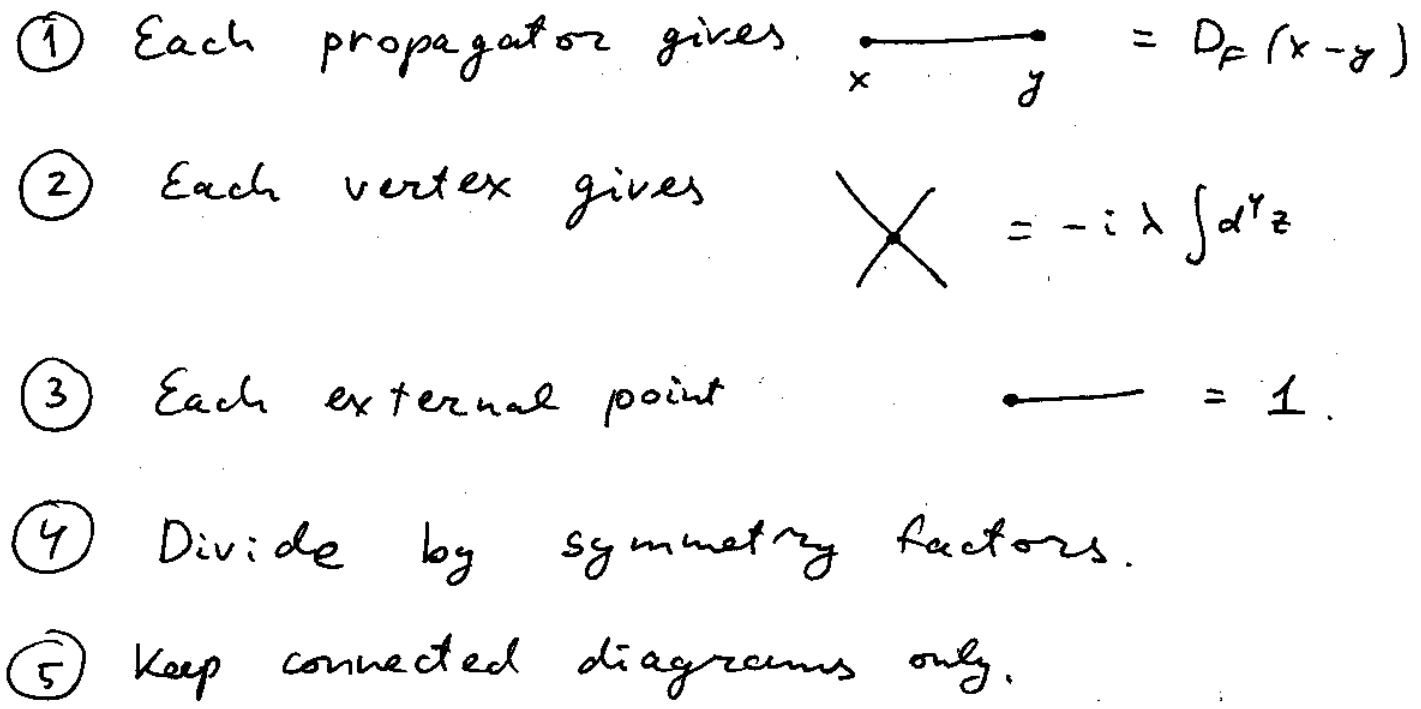 ① Each propagator gives. = D_F (x-y)
x y
② Each vertex gives = -iλ ∫d⁴z
③ Each external point = 1.
④ Divide by symmetry factors.
⑤ Keep connected diagrams only.